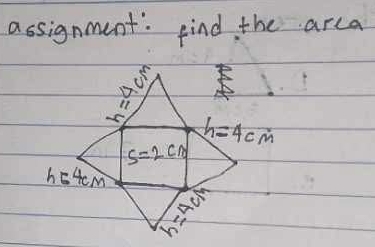 assignment: find the area
h=4cm
h=4cm
s=2cm
h=4cm
h=4cm